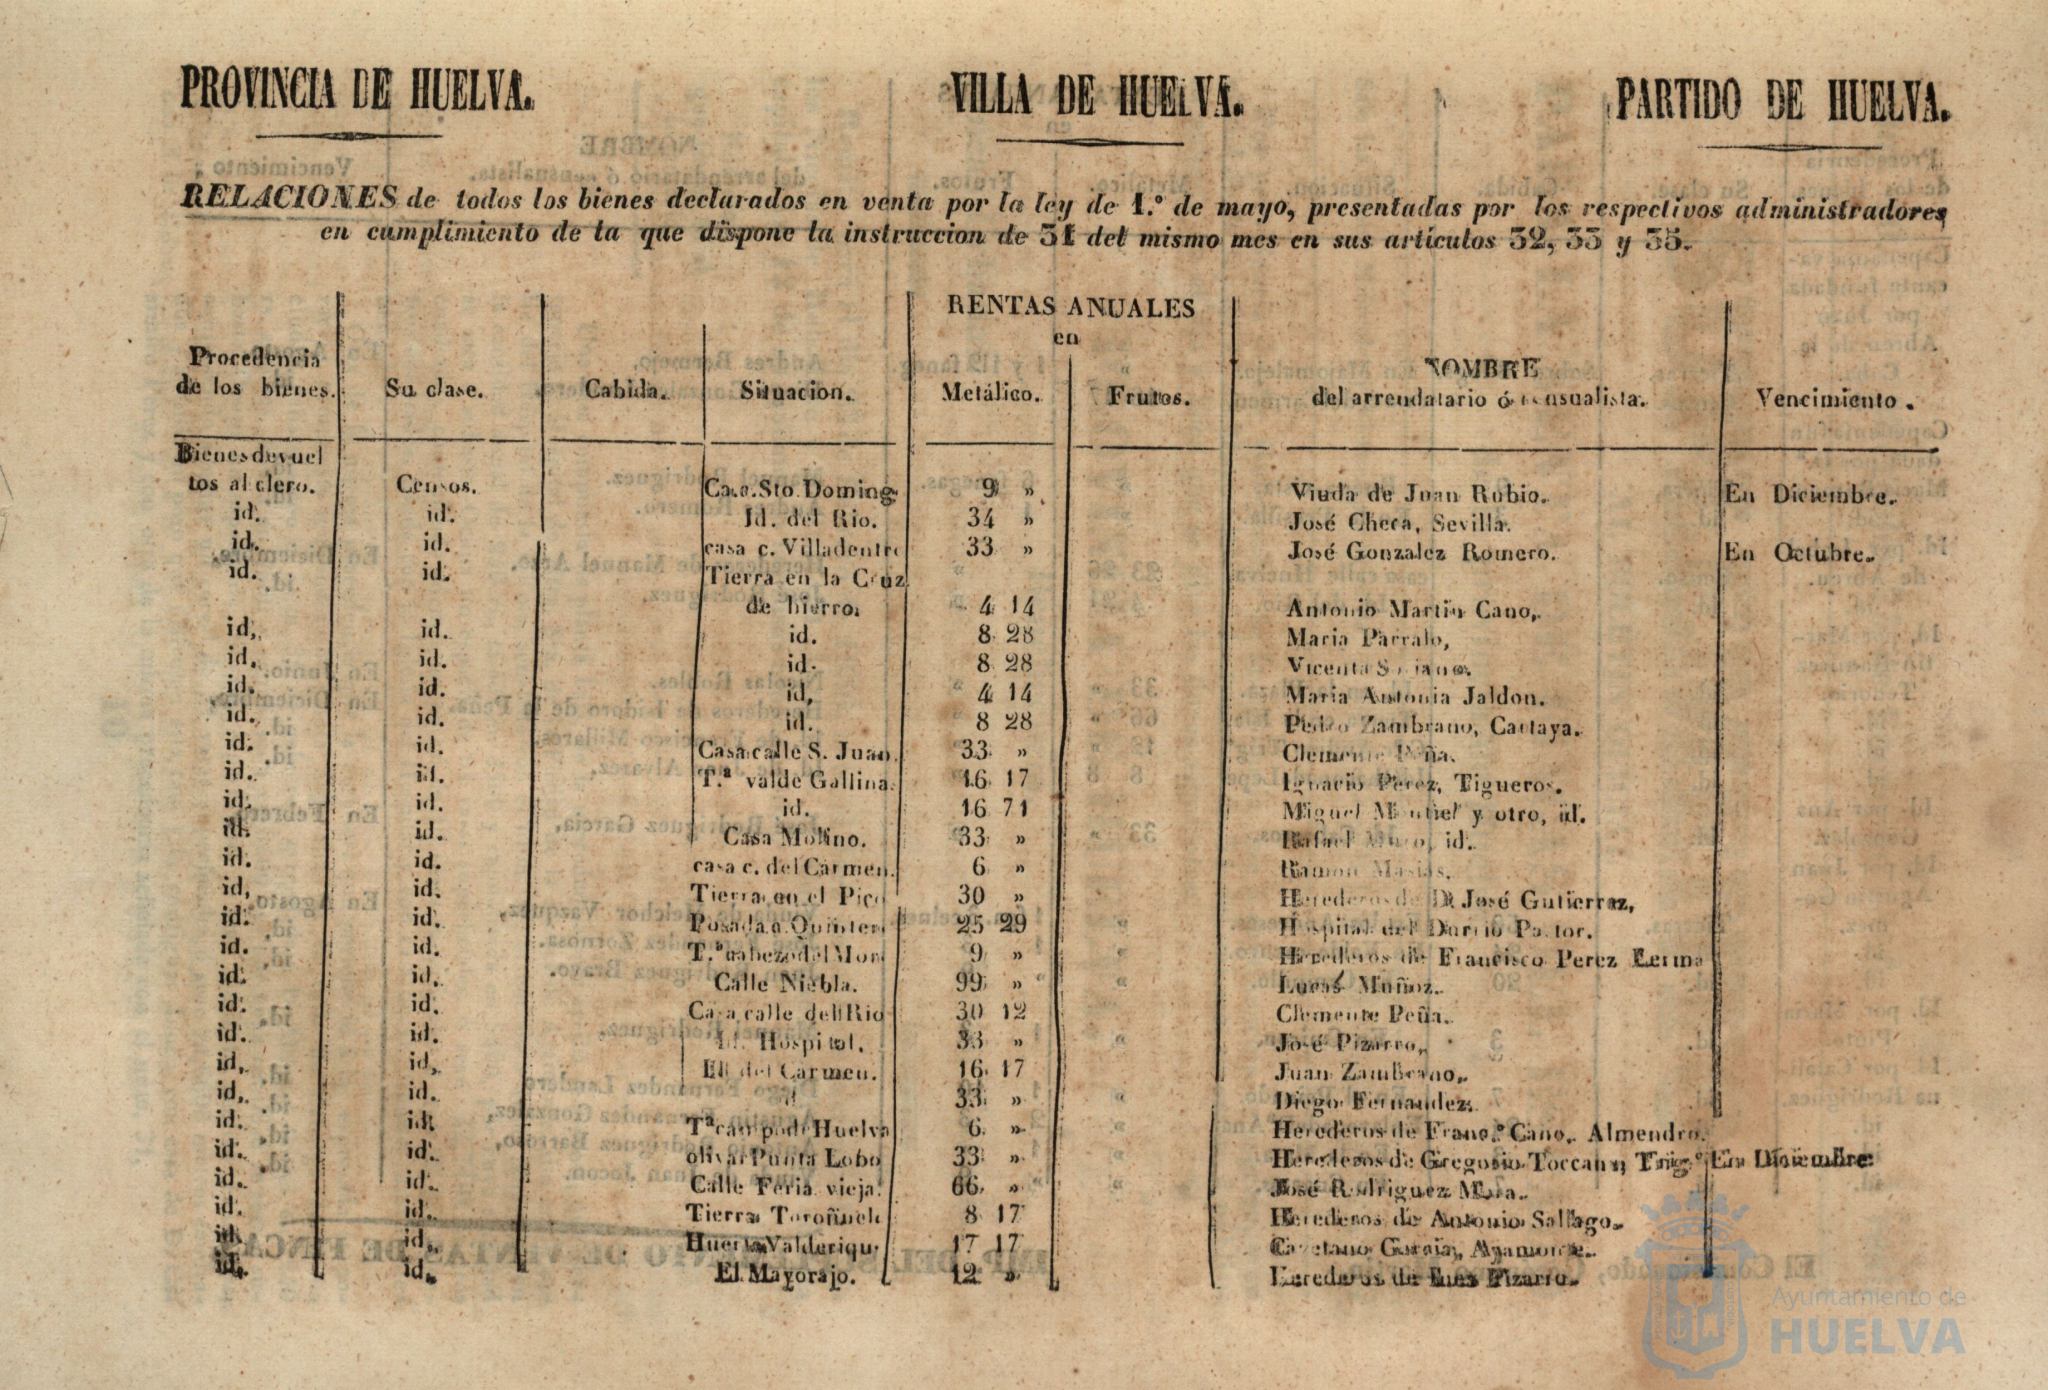 PROVINCIA DE HUELVA. VILLA DE HUELVA. PARTIDO DE HUELVA.
RELACIONES de todos los bienes declarados en venta por la ley de 1.º de mayo, presentadas por los respectivos administradores
en cumplimiento de la que dispone la instruccion de 31 del mismo mes en sus artículos 32, 33 y 35.
RENTAS ANUALES
en
Procedencia NOMBRE
de los bienes. Su clase. Cabida. Situacion. Metálico. Frutos. del arrendatario ó censualista. Vencimiento.
Bienes devuel
tos al clero. Censos. Casa Sto. Doming. 9 » Viuda de Juan Rubio. En Diciembre.
id. id. Id. del Rio. 34 » José Checa, Sevilla.
id. id. casa c. Villadentro 33 » José Gonzalez Romero. En Octubre.
id. id. Tierra en la Cruz
de hierro. 4 14 Antonio Martin Cano,
id, id. id. 8 28 Maria Parralo,
id. id. id. 8 28 Vicenta
id. id. id, 4 14 Maria Antonia Jaldon.
id. id. id. 8 28 Pedro Zambrano, Cartaya.
id. id. Casa calle S. Juan. 33 » Clemente Peña.
id. id. T.ª valde Gallina. 16 17 Ignacio Perez, Tigueros.
id. id. id. 16 71 Miguel Montiel y otro, id.
id. id. Casa Molino. 33 » Rafael id.
id. id. casa c. del Carmen. 6 » Ramon Masias.
id, id. Tierra en el Pico 30 » Herederos de D. José Gutierrez,
id. id. Posada c. Quinter. 25 29 Hospital del Pastor.
id. id. T.ª cabezo del Mon 9 » Herederos de Francisco Perez Lerma
id. id. Calle Niebla. 99 » Lucas Muñoz.
id. id. Casa calle del Rio 30 12 Clemente Peña.
id. id. Id. Hospital. 33 » José Pizarro,
id, id, Id. del Carmen. 16 17 Juan Zambrano,
id. id. id 33 » Diego Fernandez.
id. id. T.ª campo de Huelva 6 » Herederos de Franc.º Cano, Almendro.
id. id. olivar Punta Lobo 33 » Herederos de Gregorio Trig.º En Diciembre
id. id. Calle Feria vieja. 66 » José Rodriguez Mora.
id. id. Tierra 8 17 Herederos de Antonio Sallago.
id. id. Huerta 17 17 Cayetano Garcia, Ayamonte.
id. id. El Mayorajo. 12 » Herederos de Pizarro.
Ayuntamiento de
HUELVA